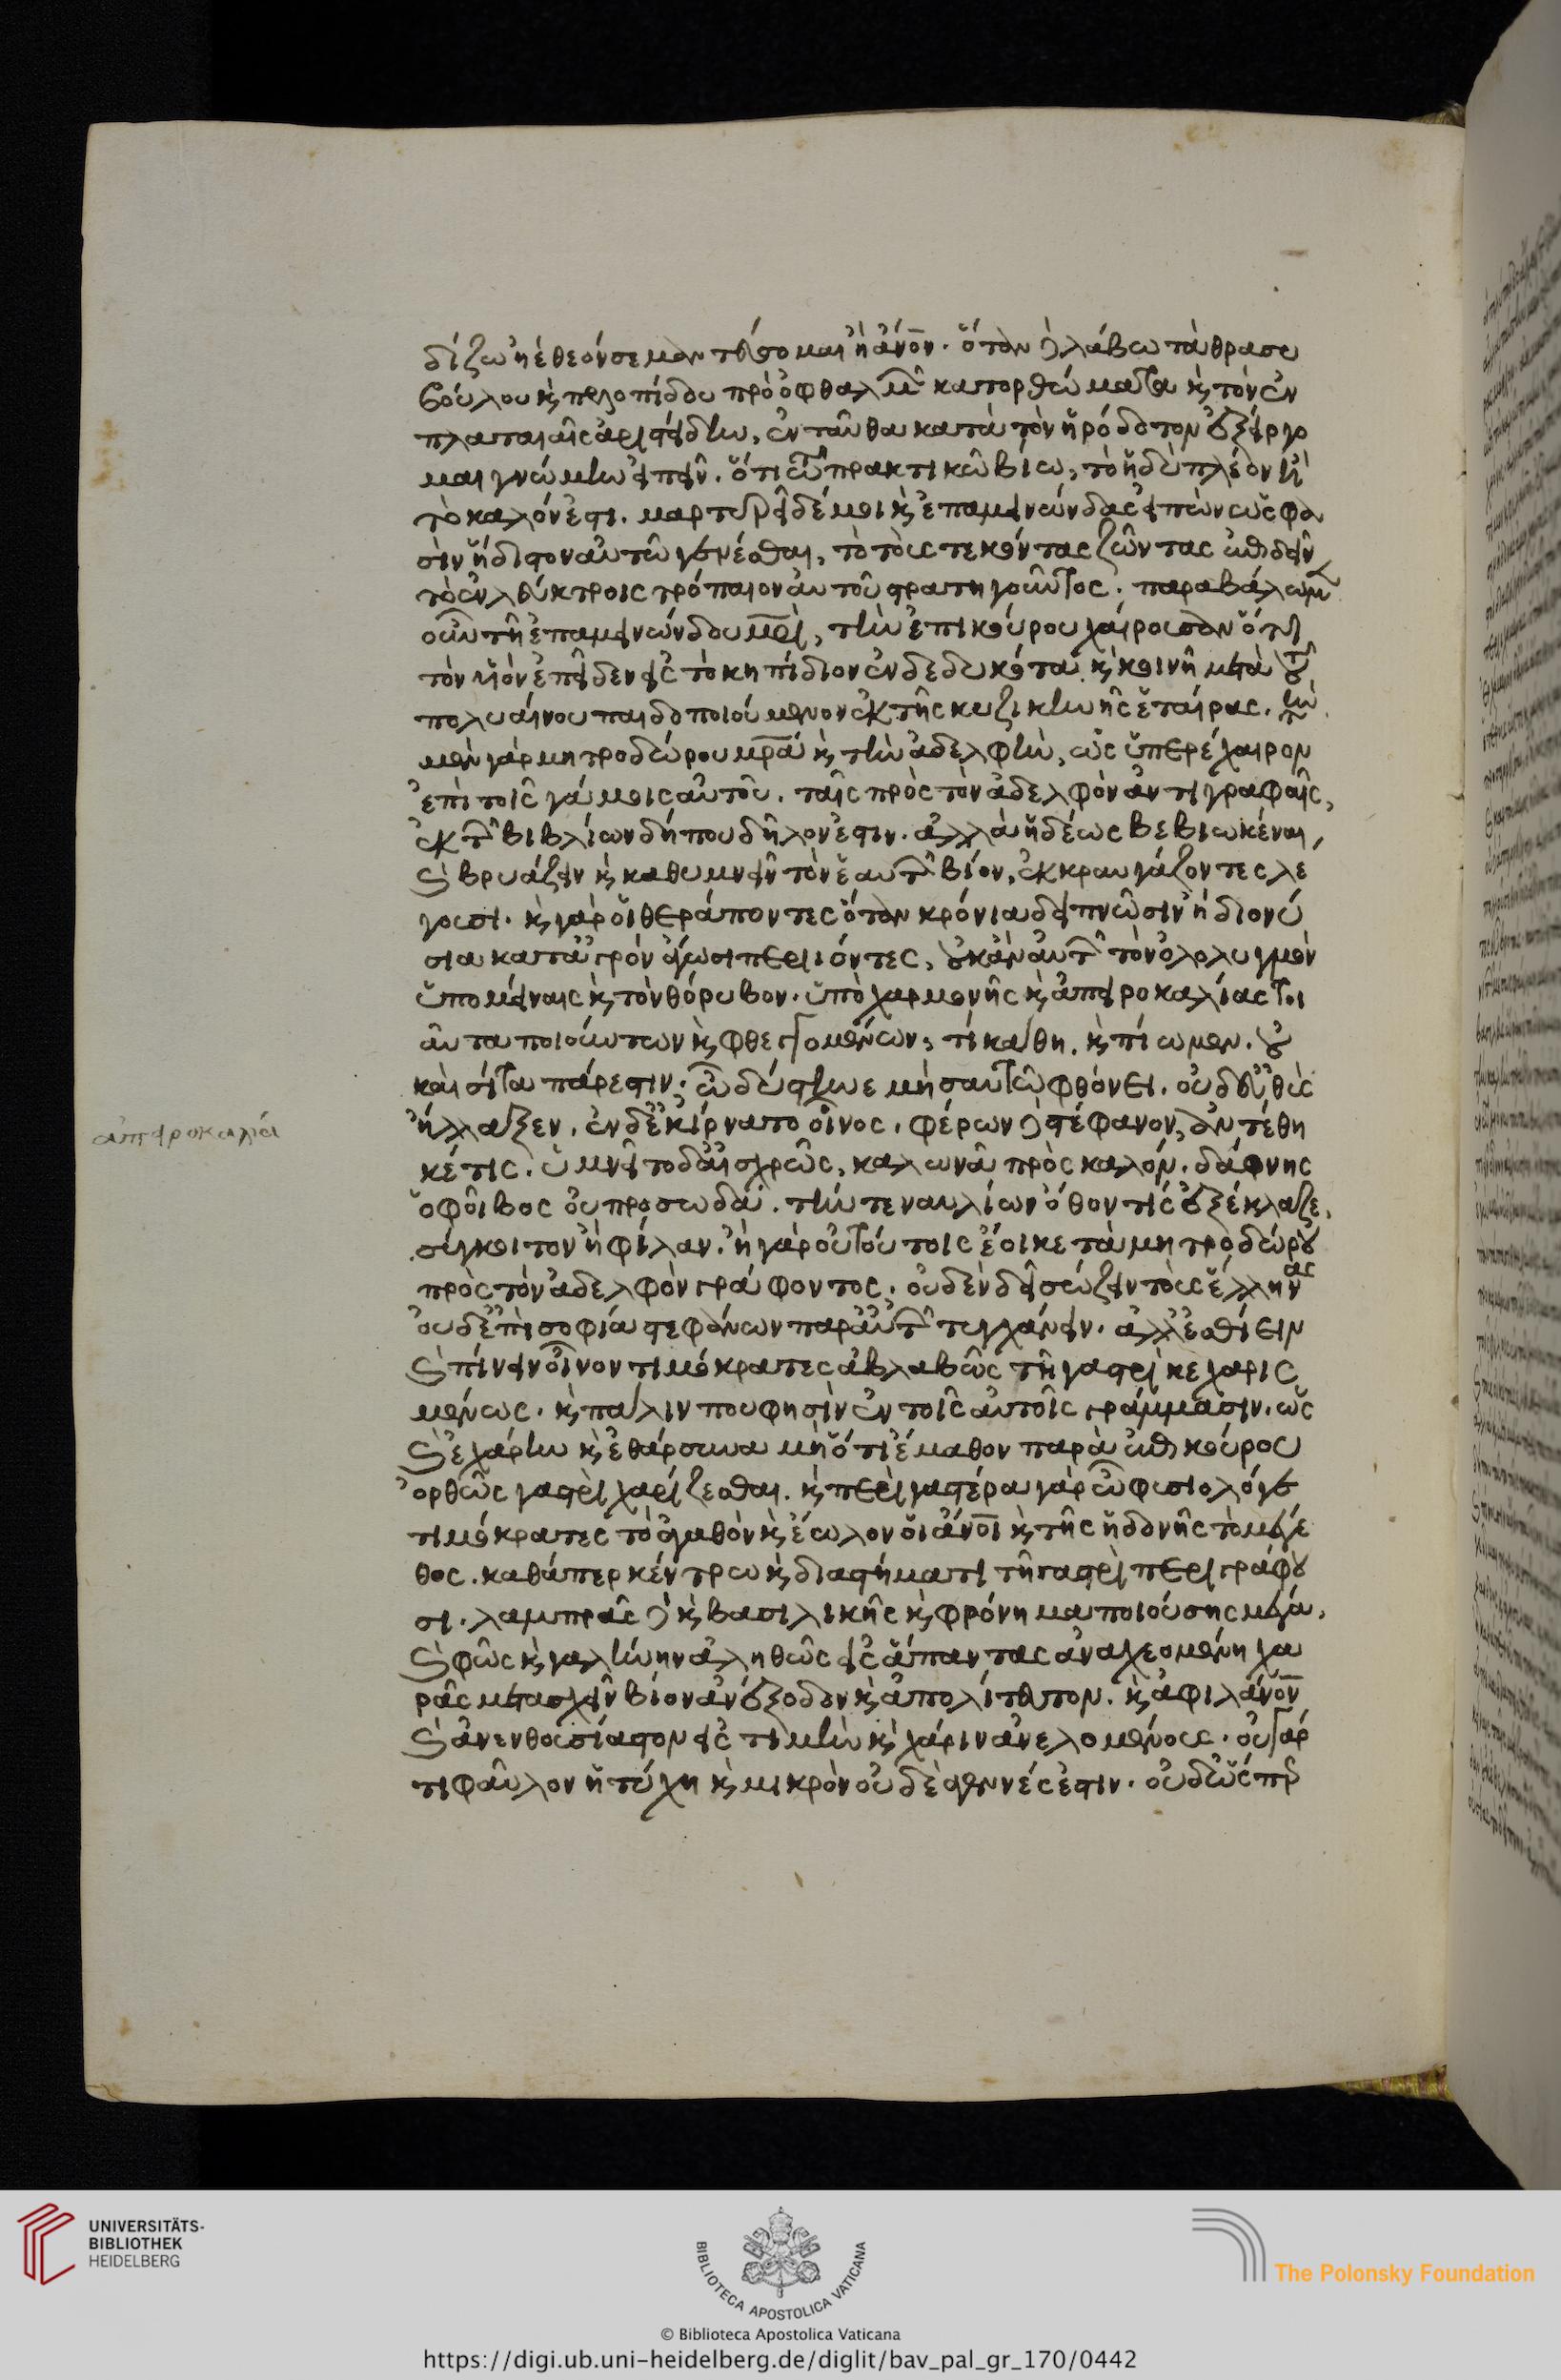 δίζω ἢ ἐ θεόν σε μαντεύσομαι ἢ ἄνον. ὅταν δὲ λάβω τὰ θρασυ
βούλου κ πελοπίδου πρὸ ὀφθαλμ κατορθώματα κ τὸν ἐν
πλαταιαῖς ἀριστείδην, ἐνταῦθα κατὰ τὸν ἡρόδοτον ἐξείργο
μαι γνώμην εἰπεῖν. ὅτι τῶ πρακτικῶ βίω, τὸ ἡδὺ πλέον ἢ
τὸ καλόν ἐστι. μαρτυρεῖ δέ μοι κ ἐπαμεινώνδας εἰπὼν ὥς φα
σιν ἥδιστον αὐτῶ γενέσθαι, τὸ τοὺς τεκόντας ζῶντας ἐπιδεῖν
τὸ ἐν λεύκτροις τρόπαιον αὐτοῦ στρατηγοῦντος. παραβάλωμ
οὖν τῆ ἐπαμεινώνδου μρὶ, τὴν ἐπικούρου χαίρουσαν ὅτι
τὸν υἱὸν ἐπεῖδεν εἰς τὸ κηπίδιον ἐνδεδυκότα κ κοινῆ μετὰ τοῦ
πολυαίνου παιδοποιούμενον ἐκ τῆς κυζικηνῆς ἑταίρας. τὴν
μὲν γὰρ μητροδώρου μρα κ τὴν ἀδελφὴν, ὡς ὑπερέχαιρον
ἐπὶ τοῖς γάμοις αὐτοῦ. ταῖς πρὸς τὸν ἀδελφὸν ἀντιγραφαῖς,
ἐκ τῶν βιβλίων δήπου δῆλόν ἐστιν. ἀλλὰ ἡδέως βεβιωκέναι,
κ βρυάζειν κ καθυμνεῖν τὸν ἑαυτῶν βίον, ἐκκραυγάζοντες λέ
γουσι. κ γὰρ οἱ θεράποντες ὅταν κρόνια δειπνῶσιν ἢ διονύ
σια κατ ἀγρὸν ἄγωσι περιιόντες, οὐκ ἂν αὐτῶν τὸν ὀλολυγμὸν
ὑπομείναις κ τὸν θόρυβον. ὑπὸ χαρμονῆς κ ἀπειροκαλίας τοι
αῦτα ποιούντων κ φθεγγομένων, τί κάθη. κ πίωμεν. οὐ
καὶ σῖτα πάρεστιν; ὦ δύστηνε μὴ σαυτῶ φθόνει. οἱ δ εὐθὺς
ἠλάλαξεν, ἐν δ ἐκίρνατο οἶνος. φέρων δὲ στέφανον, ἀντέθη
κέ τις. ὑμνεῖτο δ αἰσχρῶς, καλωνᾶ πρὸς καλόν. δάφνης
ὁ φοῖβος οὐ προσωδά. τήν τ ἐναυλίων ὄθον τίς ἐξέκλαζε.
σύγκοιτον ἢ φίλαν. ἦ γὰρ οὐ τούτοις ἔοικε τὰ μητροδώρου
πρὸς τὸν ἀδελφὸν γράφοντος. οὐδὲν δεῖ σώζειν τοὺς ἕλληνας
οὐδ ἐπὶ σοφία στεφάνων παρ αὐτῶν τυγχάνειν. ἀλλ ἐσθίειν
κ πίνειν οἶνον τιμόκρατες ἀβλαβῶς τῆ γαστρὶ κεχαρισ
μένως. κ πάλιν που φησὶν ἐν τοῖς αὐτοῖς γράμμασιν. ὡς
κ ἐχάρην κ ἐθάρσυνα μὴ ὅτι ἔμαθον παρὰ ἐπικούρου
ὀρθῶς γαστρὶ χαρίζεσθαι. κ περὶ γαστέρα γὰρ ὦ φυσιολόγε
τιμόκρατες τὸ ἀγαθὸν κ ἔωλον οἱ ἄνοι κ τῆς ἡδονῆς τὸ μέγε
θος. καθάπερ κέντρω κ διαστήματι τῆ γαστρὶ περιγράφου
σι. λαμπρᾶς δὲ κ βασιλικῆς κ φρόνημα ποιούσης μέγα,
κ φῶς κ γαλήνην ἀληθῶς εἰς ἅπαντας ἀναχεομένη χα
ρᾶς μετασχεῖν βίον ἀνέξοδον κ ἀπολίτευτον. κ ἀφιλάνον
κ ἀνενθουσίαστον εἰς τιμὴν κ χάριν ἀνελομένους. οὐ γάρ
τι φαῦλον ἡ τύχη κ μικρὸν οὐδὲ ἀγεννές ἐστιν. οὐδ ὥσπερ
ἀπειροκαλία
UNIVERSITÄTS-
BIBLIOTHEK
HEIDELBERG
BIBLIOTECA APOSTOLICA VATICANA
The Polonsky Foundation
© Biblioteca Apostolica Vaticana
https://digi.ub.uni-heidelberg.de/diglit/bav_pal_gr_170/0442